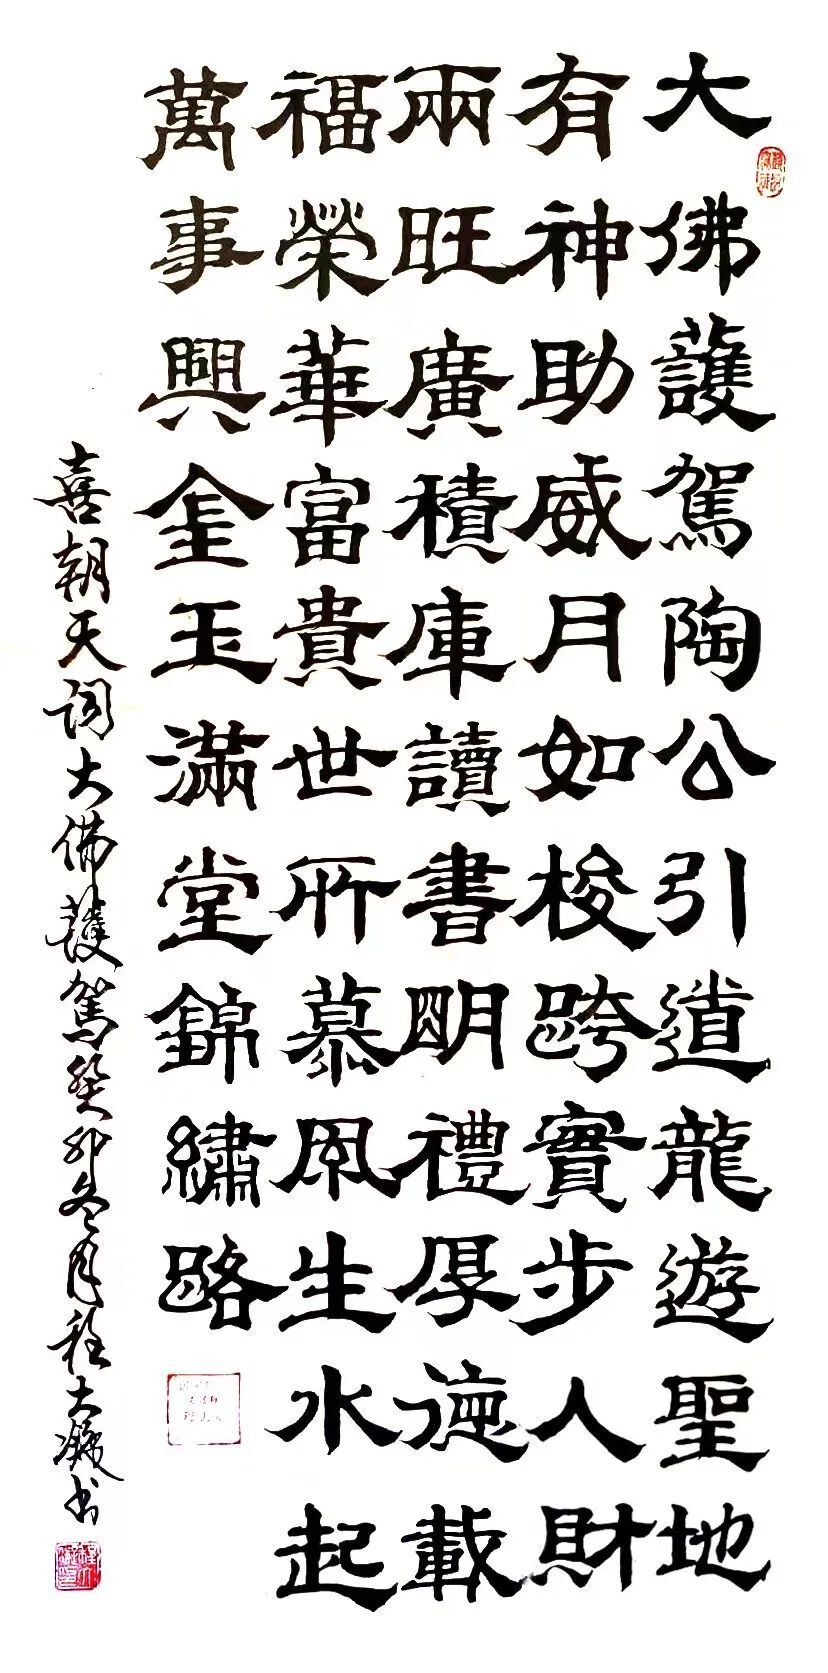 大佛護駕陶公引道龍遊聖地
有神助威月如梭跨實步人財
兩旺廣積庫讀書明禮厚德載
福榮華富貴世所慕風生水起
萬事興金玉滿堂錦繡路
喜朝天詞大佛護駕癸卯冬月程大鏹书